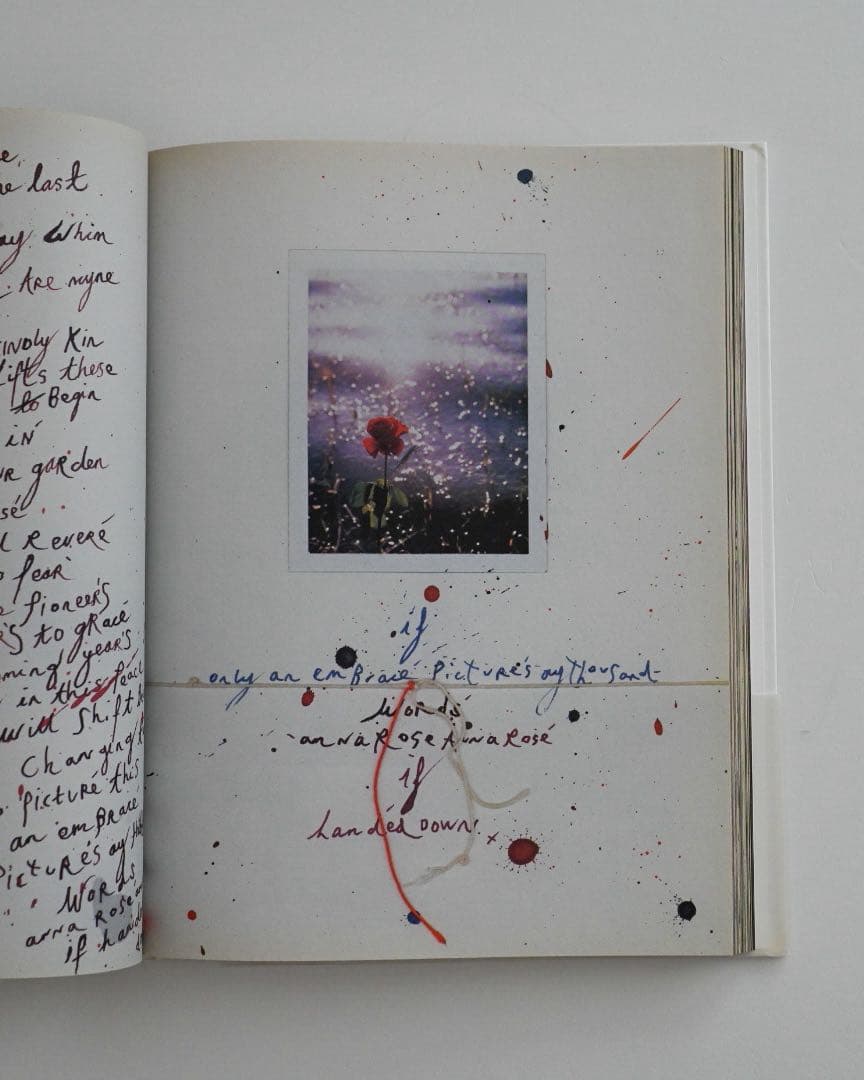 e,
e last
ay Whim
. ARE myne
INDLY Kin
lifts these
to Begin
IN
UR garden
sé
l REVERÉ
o fear
e PIONEER'S
R'S TO GRACÉ
ming year's
in this
will Shift
Changing
PICTURÉ this
an emBracé
Picturé's ay
Words
anna Rose
if hand
if
only an emBracé Picturé's ay thousand
Words
anna Rose Anna Rosé
if
handéd down. x